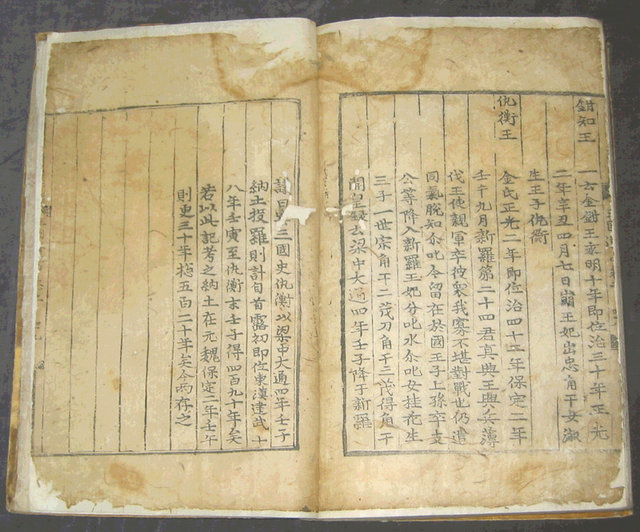 鉗知王 一云金鉗王永明十年即位治三十年正光
二年辛丑四月七日崩王妃出忠角干女淑
生王子仇衡
仇衡王
金氏正光二年即位治四十二年保定二年
壬午九月新羅第二十四君真興王興兵薄
伐王使親軍卒彼衆我寡不堪對戰也仍遣
同氣脫知尒叱今留在於國王子上孫卒支
公等降入新羅王妃分叱水尒叱女桂花生
三子一世宗角干二茂刀角干三茂得角干
開皇録云梁中大通四年壬子降于新羅
議曰 三國史仇衡以梁中大通四年壬子
納土投羅則計自首露初即位東漢建武十
八年壬寅至仇衡末壬子得四百九十年矣
若以此記考之納土在元魏保定二年壬午
則更三十年揔五百二十年矣今兩存之